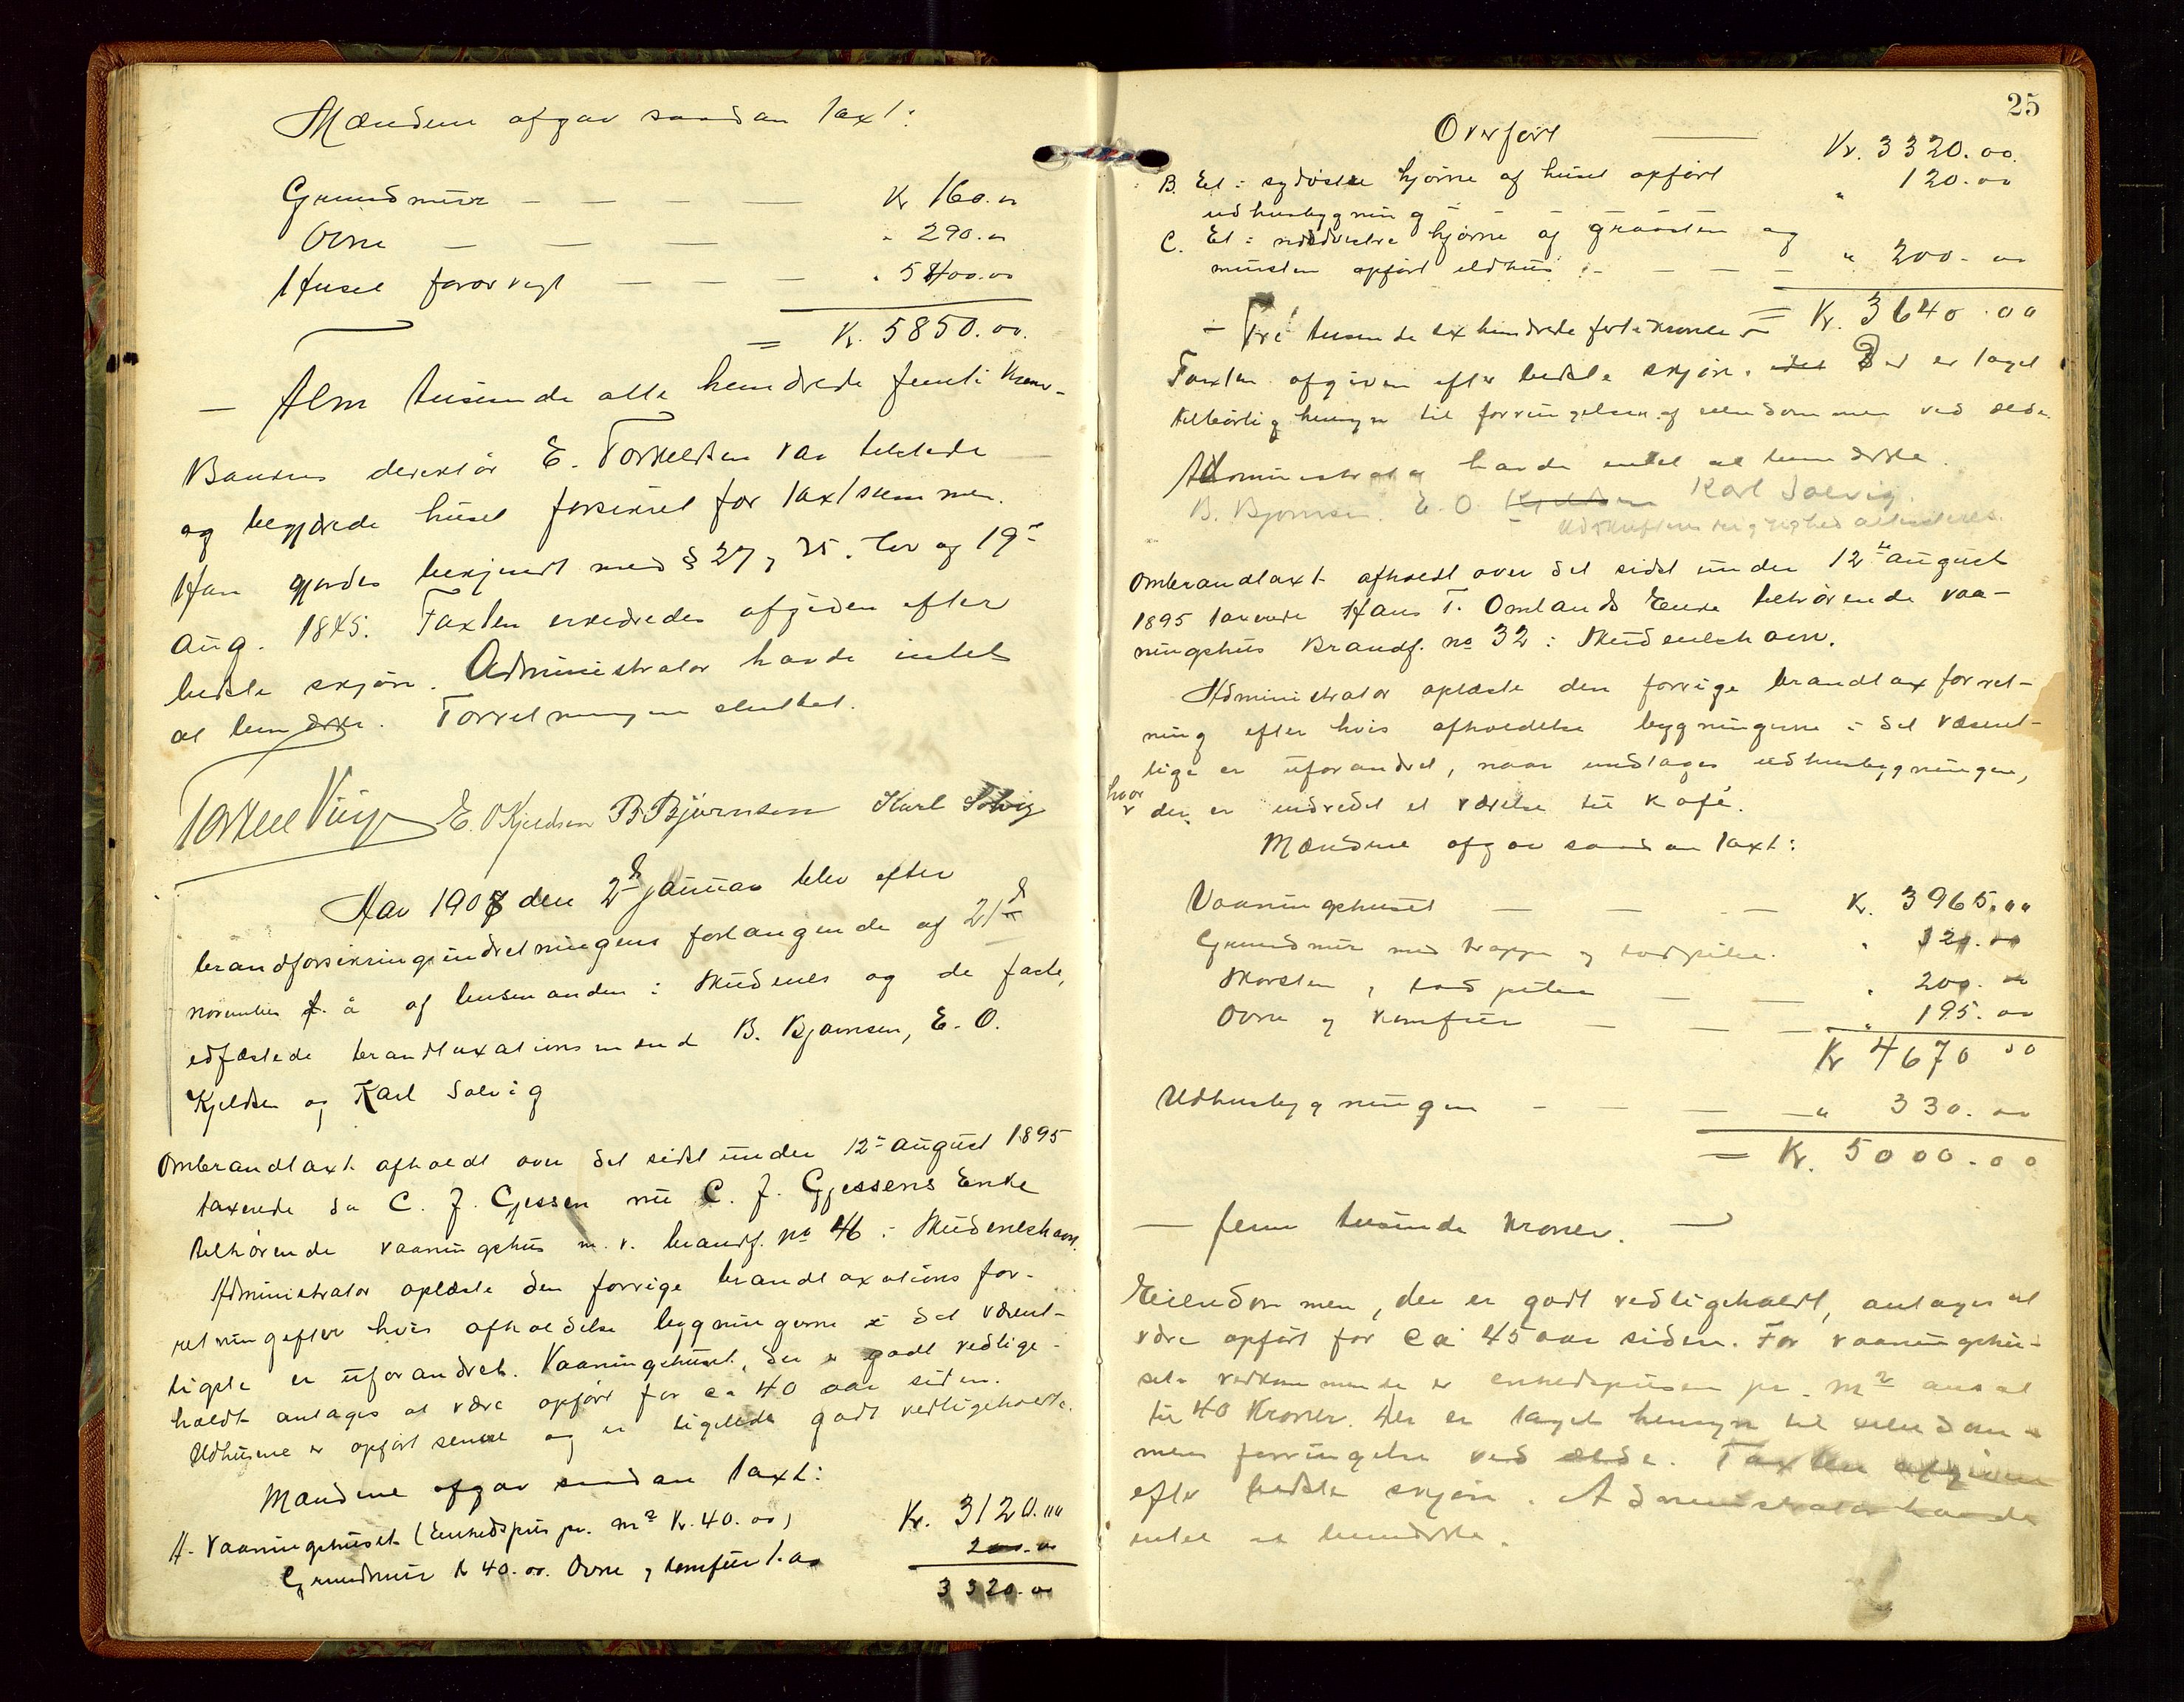 Mændene afgav saadan taxt:
Grundmur — — — — Kr 160.00
Ovne — — — " 290.00
Huset forøvrigt — — — " 5400.00
= Kr. 5850.00.
— Fem tusende otte hundrede femti Kroner —
Bankens direktør E. Torkelsen var tilstede
og begjærede huset forsikret for taxtsummen.
Han gjordes bekjendt med § 27, 25. lov og 19de
aug. 1845. Taxten erklæredes afgiven efter
bedste skjøn. Administrator havde intet
at bemærke. Forretningen sluttet.
E. O Kjeldsen B Bjørnsen Karl Solvig
Aar 1908 den 2d januar blev efter
brandforsikringsindretningens forlangende af 21d
november f. å af lensmanden i Skudenes og de faste,
edfæstede brandtaxationsmænd B. Bjørnsen, E. O.
Kjeldsen og Karl Solvig
Ombrandtaxt afholdt over det sidst under 12te august 1895
taxerede da C. J. Gjessen nu C. J. Gjessens Enke
tilhørende vaaningshus m. v. brandf. no 46 i Skudeneshavn.
Administrator oplæste den forrige brandtaxationsfor-
retning efter hvis afholdelse bygningerne i det væsent-
ligste er uforandret. Vaaningshuset, der er godt vedlige-
holdt antages at være opført for ca 40 aar siden.
Udhusene er opført senere og er ligeledes godt vedligeholdt.
Mændene afgav saadan taxt:
A. Vaaningshuset (Enhedspris pr. m2 Kr. 40.00) Kr. 3120.00
Grundmur Kr 40.00. Ovne, komfur 200.00
3320.00
25
Overført — Kr. 3320.00.
B. Et i sydøstre hjørne af huset opført
udhusbygning — — " 120.00
C. Et i nordvestre hjørne af graasten og
mursten opført ildhus — — — " 200.00
= Kr. 3640.00
— Tre tusende sex hundrede forti kroner —
Taxten afgiven efter bedste skjøn. Det er taget
tilbørlig hensyn til forringelsen af eiendommen ved ælde.
Administrator havde intet at bemærke.
B. Bjørnsen. E. O. Kjeldsen Karl Solvig.
Udskriftens rigtighed attesteres.
Ombrandtaxt afholdt over det sidst under 12te august
1895 taxerede Hans T. Omlands Enke tilhørende vaa-
ningshus Brandf. no 32 i Skudeneshavn.
Administrator oplæste den forrige brandtaxforret-
ning efter hvis afholdelse bygningerne i det væsent-
lige er uforandret, naar undtages udhusbygningen,
hvor der er indredet et værelse til kafé.
Mændene afgav saadan taxt:
Vaaningshuset — — — Kr. 3965.00
Grundmur med trappe og
Skorsten, — — " 200.00
Ovne og komfur — — — " 195.00
Kr 4670 00
Udhusbygningen — — — " 330.00
= Kr. 5000.00
— fem tusinde kroner. —
Eiendommen, der er godt vedligeholdt, antages at
være opført for ca 45 aar siden. For vaaningshu-
sets vedkommende er enhedsprisen pr. m2 ansat
til 40 Kroner. Der er taget hensyn til eiendom-
mens forringelse ved ælde. Taxten afgiven
efter bedste skjøn. Administrator havde
intet at bemærke.